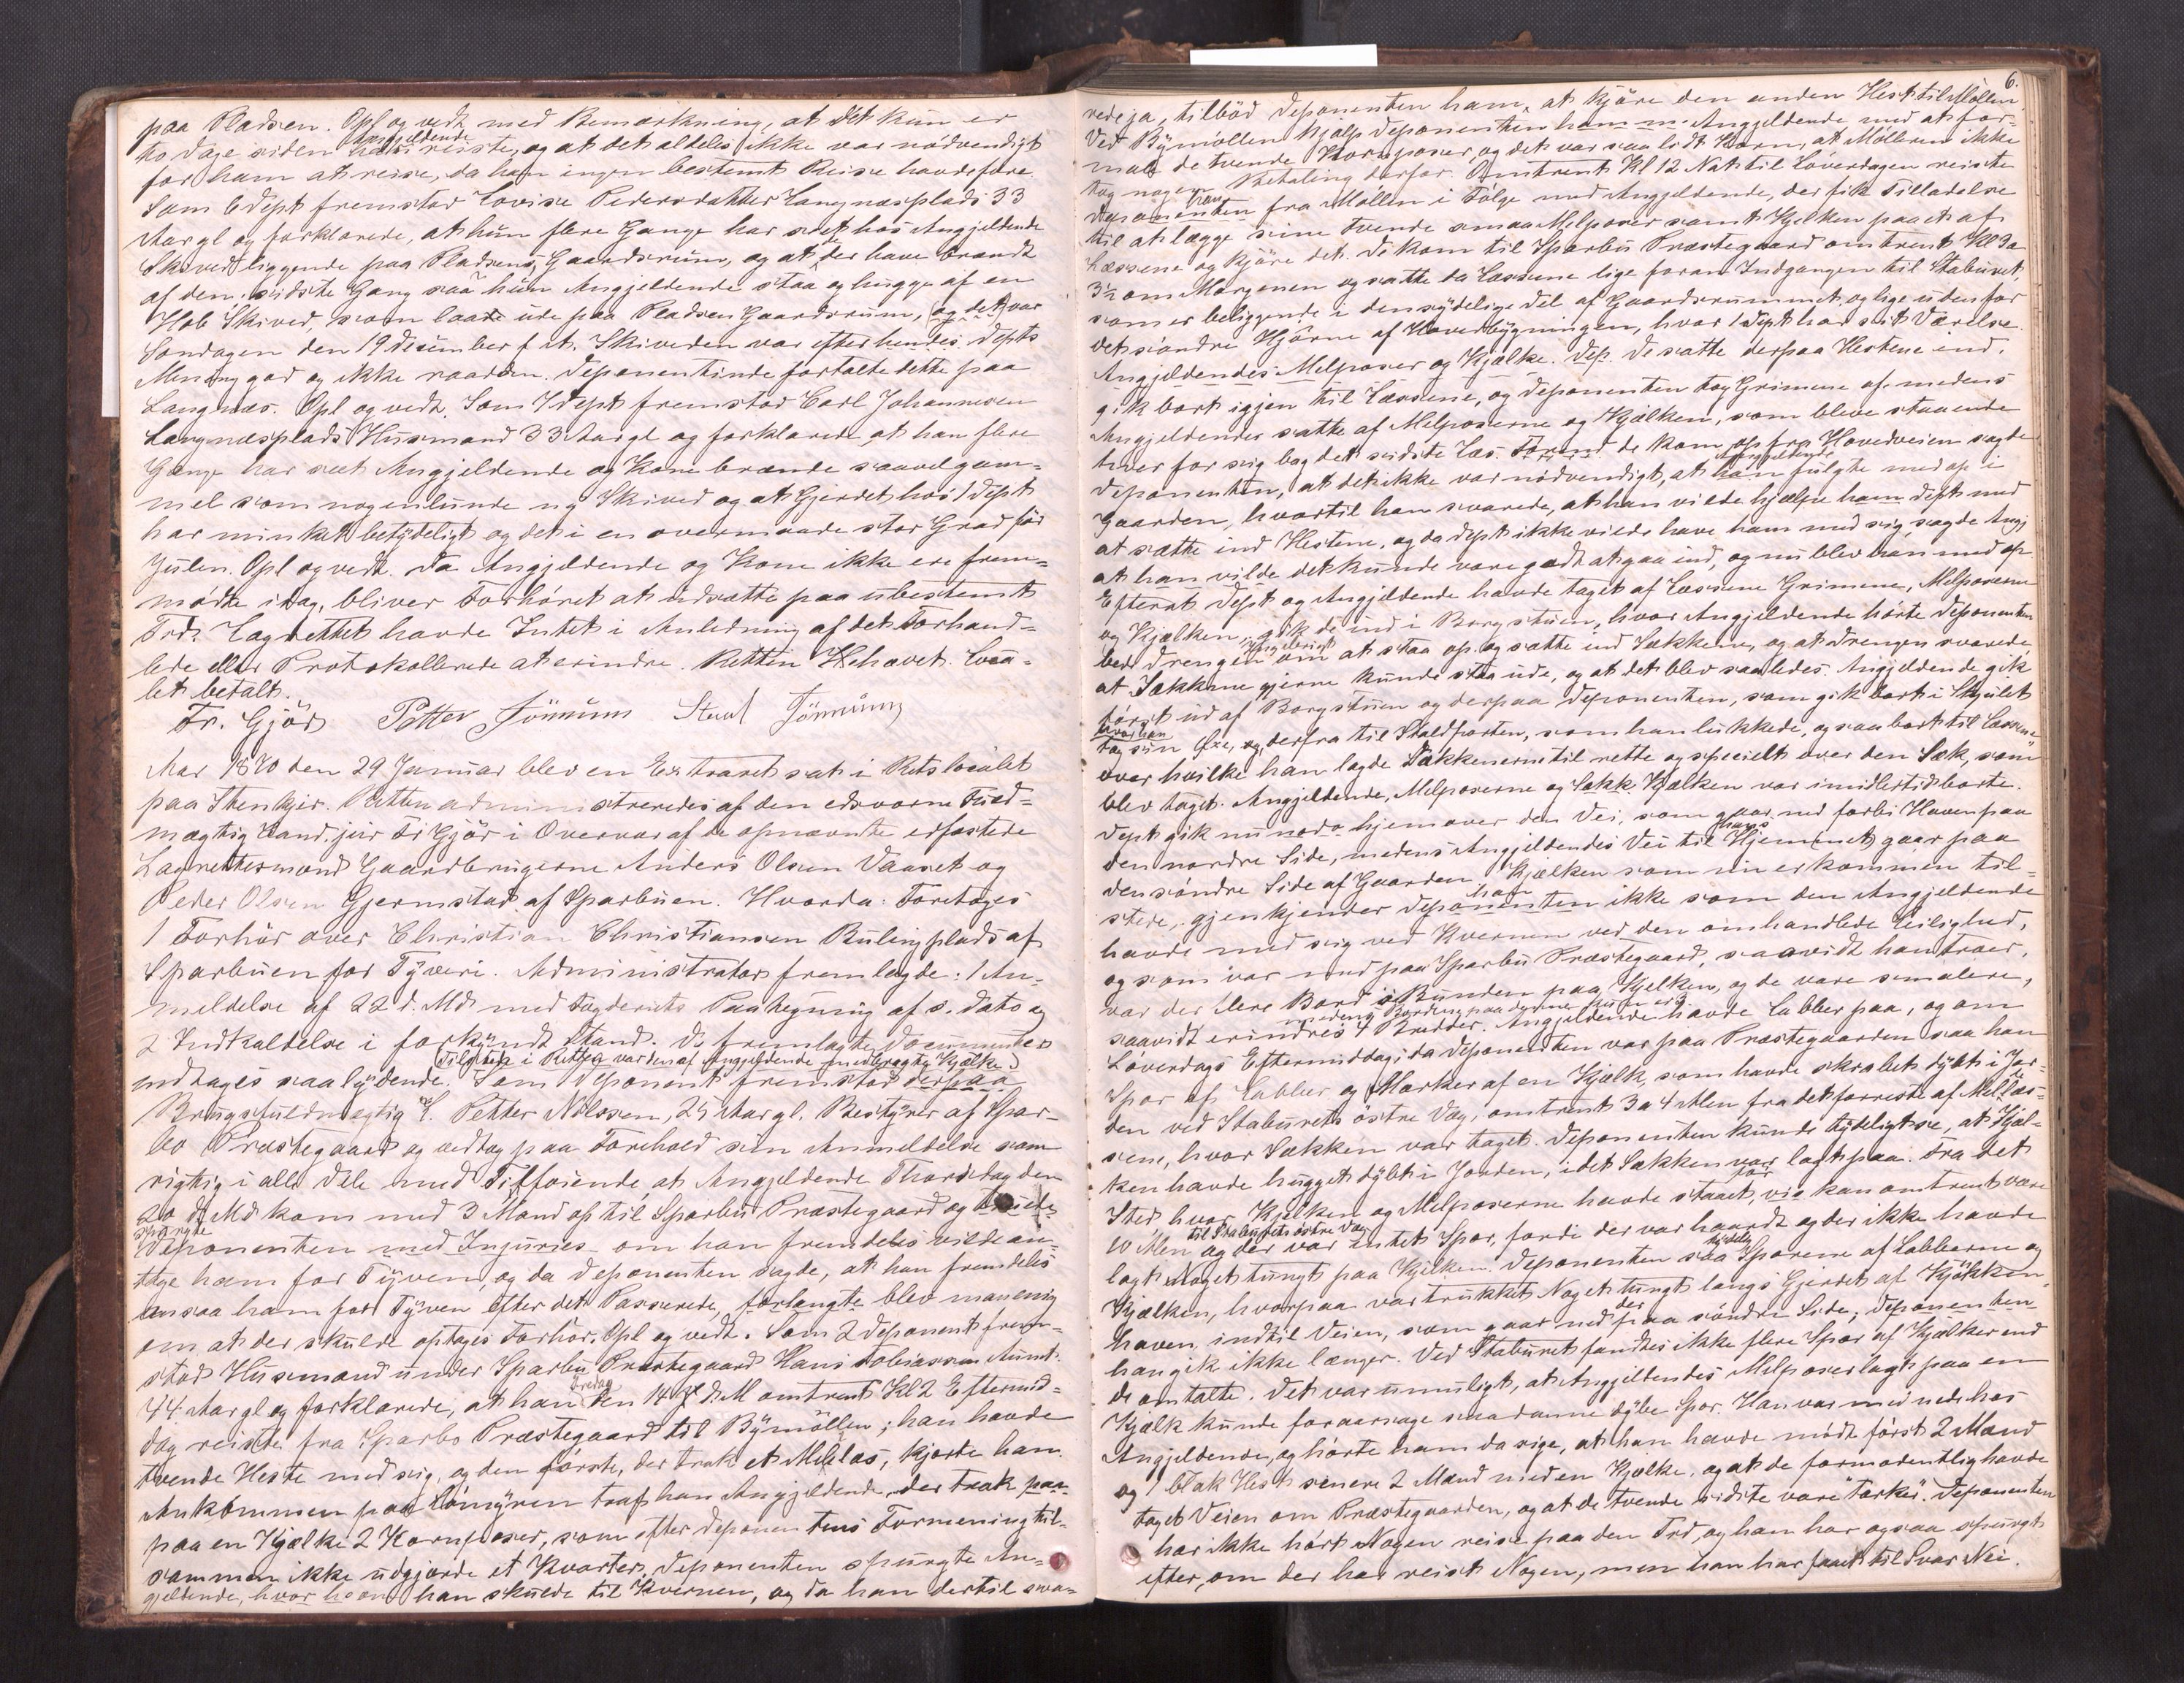 paa Pladsen. Opl og vedt. med Bemærkning, at det kun er
to Dage siden Angjældende reiste, og at det aldeles ikke var nødvendigt
for ham at reise, da han ingen bestemt Reise havde føre.
Som 6 Dept fremstod Lovise Pedersdatter Langnæsplads 33
Aar gl og forklarede, at hun flere Gange har seet hos Angjeldende
Skived liggende paa Pladsens Gaardsrum, og at de der have brændt
af den. sidste Gang saa hun Angjeldende staa og hugge af en
Hob Skived, som laa ude paa Pladsen Gaardsrum, og det var
Søndagen den 19 December f. A. Skiveden var efter hendes Depts
Mening god og ikke raaden. Deponentinde fortalte dette paa
Langnæs. Opl og vedt. Som 7 Dept fremstod Carl Johannesen
Langnæsplads Husmand 33 Aar gl og forklarede, at han flere
Gange har seet Angjeldende og Kone brænde saavel gam-
mel som nogenlunde ny Skived og at Gjerdet hos 1 Dept
har minket betydeligt og det i en overmaade stor Grad før
Julen. Opl og vedt. Da Angjeldende og Kone ikke ere frem-
mødte idag, bliver Forhøret at udsætte paa ubestemt
Tid. Lagrettet havde Intet i Anledning af det Forhand-
lede eller Protokollerede at erindre. Retten Hehævet. Loca-
let betalt.
Fr. Gjør Petter Jönnum Jönnum
Aar 1870 den 29 Januar blev en Extraret sat i Retslocalet
paa Stenkjer. Retten administreredes af den edsvorne Fuld-
mægtig Cand. jur Fr Gjør i Overvær af de opnævnte edfæstede
Lagrettesmænd Gaardbrugerne Anders Olsen Vaaset og
Peder Olsen Gjermstad af Sparbuen. Hvorda: Foretoges
1 Forhør over Christian Christiansen Rulingplads af
Sparbuen for Tyveri. Administrator fremlagde: 1 An-
meldelse af 22 d. Md med Fogderiets Paategning af s. Dato og
2 Indkaldelse i forkyndt Stand. De fremlagte Documenter
indtages saalydende. (Tilstede i Retten var den af Angjeldende medbragte Kjælke)
Som Deponent fremstod derpaa
1 Brugsfuldmægtig Petter Nilssen, 25 Aar gl. Bestyrer af Spar-
bo Præstegaard og vedtog paa Forehold sin Anmeldelse som
rigtig i alle Dele med Tilføiende, at Angjeldende Thorsdag den
20 d. Md kom med 3 Mand op til Sparbu Præstegaard og
spurgte
Deponenten med Injurier om han fremdeles vilde an-
tage ham for Tyven, og da Deponenten sagde, at han fremdeles
ansaa ham for Tyven efter det Passerede, forlangte blev man enig
om at der skulde optages Forhør. Opl og vedt. Som 2 Deponent frem-
stod Husmand under Sparbu Præstegaard Hans Tobiassen
44 Aar gl og forklarede, at han Fredag den 14 d. M omtrent Kl 2 Eftermid-
dag reiste fra Sparbo Præstegaard til Bymøllen; han havde
tvende Heste med sig, og den første, der trak et Mellæs, kjørte han.
Ankommen paa traf han Angjeldende, der trak paa
paa en Kjælke 2 Kornposer, som efter Deponentens Formening til-
sammen ikke udgjorde et Kvarter. Deponenten spurgte An-
gjeldende, hvor han skulde til Kvernen, og da han dertil sva-
6.
rede ja, tilbød Deponenten ham, at kjøre den anden Hest til Møllen.
Ved Bymøllen hjalp Deponenten ham Angjeldende med at for-
male de tvende Kornposer, og det var saa lidt Korn, at Mølleren ikke
tog nogen Betaling derfor. Omtrent Kl 12 Nat til Løverdagen reiste
Deponenten fra Møllen i Følge med Angjeldende, der fik Tilladelse
til at lægge sine tvende smaa Melposer samt Kjelken paa et af
Læssene og kjøre det. De kom til Sparbu Præstegaard omtrent Kl 3 a
3½ om Morgenen og satte da Læssene lige foran Indgangen til Staburet,
som er beliggende i den sydelige Del af Gaardsrummet, og lige udenfor
det søndre Hjørne af Hovedbygningen, hvor 1 Dept har sit Værelse
Angjeldendes Melposer og Kjælke. Dep. De satte derpaa Hestene ind,
gik bort igjen til Læssene, og Deponenten tog Grimene af medens
Angjeldendes satte af Melposerne og Kjælken, som bleve staaende
hver for sig bag det sidste Læs. Forend de kom op fra Hovedveien sagde
Deponenten, at det ikke var nødvendigt, at Angjeldende fulgte med op i
Gaarden, hvortil han svarede, at han vilde hjælpe ham Dept med
at sætte ind Hestene, og da Dept ikke vilde have ham med sig, sagde Angj
at han vilde det kunde være godt at gaa ind, og nu blev han med op
Efterat Dept og Angjeldende havde taget af Læssene Grimene, Melposerne
og Kjælken, gik de ind i Borgstuen, hvor Angjeldende hørte Deponenten
bede Drengen om at staa op og sætte ind Sækkene, og at Drengen svarede
at Sækkene gjerne kunde staa ude, og at det blev saaledes. Angjeldende gik
først ud af Borgstuen og derpaa Deponenten, som gik bort i Skjulet
hvor han
tog sin Øxe, og derfra til Staldporten, som han lukkede, og saa bort til Læssene
over hvilke han lagde Dækkenerne til rette og specielt over den Sæk, som
blev taget. Angjeldende, Melposerne og Kjælken var imidlertid borte.
Dept gik nu ned hjem over den Vei, som gaar ned forbi Haven paa
den nordre Side, medens Angjeldendes Vei til hans Hjem gaar paa
den søndre Side af Gaarden. Kjælken som nu er kommen til-
stede, gjenkjender han Deponenten ikke som den Angjeldende
havde med sig ved Kvernen ved den omhandlede Leilighed,
og som var med paa Sparbu Præstegaard, saavidt han troer,
var der flere Bord i Bunden paa Kjælken, og de vare smalere,
saavidt erindres 4 Bredder. Angjeldende havde Labber paa, og om
Løverdags Eftermiddag, da Deponenten var paa Præstegaarden saa han
Spor af Labber og Mærker af en Kjælk, som havde skrabet dybt i Jor-
den ved Staburets østre Væg, omtrent 3 a 4 Alen fra det forreste af Mellæs-
sene, hvor Sækken var taget. Deponenten kunde tydeligt se, at Kjæl-
ken havde hugget dybt i Jorden, idet Sækken var lagt paa. Fra det
Sted hvor Kjælken og Melposerne havde staaet, kan omtrent være
10 Alen til Staburets østre Væg og der var intet Spor, fordi der var haardt og der ikke havde
lagt Noget tungt paa Kjælken. Deponenten saa tydelig Sporene af Labberne og
Kjælken, hvorpaa var trukket Noget tungt langs Gjerdet af Kjøkken-
haven indtil Veien, som gaar ned der paa søndre Side; Deponenten
han gik ikke længer. Ved Staburet fandtes ikke flere Spor af Kjælker end
de omtalte. Det var umuligt, at Angjeldendes Melposer lagt paa en
Kjælk kunde foraarsage saadanne dybe Spor. Han var med nede hos
Angjeldende, og hørte ham da sige, at han havde mødt først 2 Mænd
og 1 blak Hest senere 2 Mænd med en Kjælke, og at de formodentlig havde
taget Veien om Præstegaarden, og at de tvende sidste vare "Tarker". Deponenten
har ikke hørt Nogen reise paa den Tid, og han har ogsaa spurgt
efter, om der har reist Nogen, men han har faaet til Svar Nei.